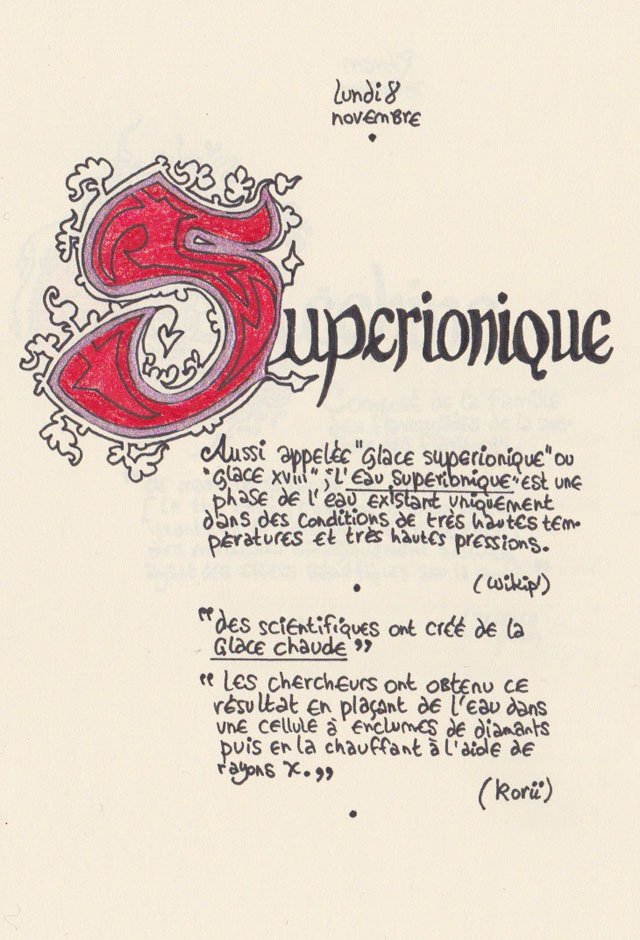 lundi 8
novembre
Superionique
Aussi appelée "Glace superionique" ou
"Glace XVIII"; l'Eau Superionique" est une
phase de l'eau existant uniquement
dans des conditions de très hautes tem-
pératures et très hautes pressions.
(wikip')
"des scientifiques ont créé de la
Glace chaude"
"Les chercheurs ont obtenu ce
résultat en plaçant de l'eau dans
une cellule à enclumes de diamants
puis en la chauffant à l'aide de
rayons X."
(Korii)